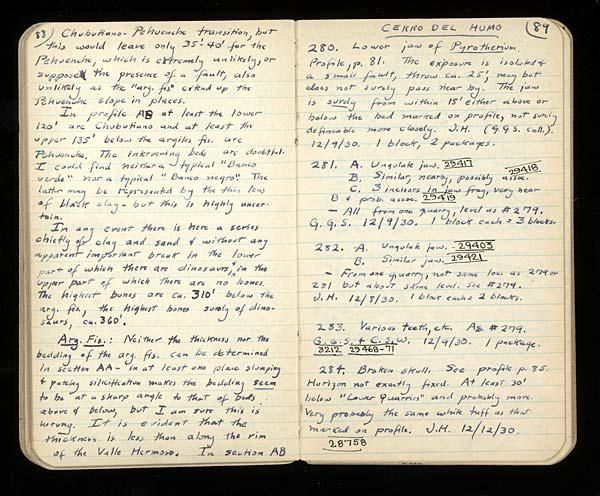 88) Chubutiano-Pehuenche transition, but
this would leave only 35'-40' for the
Pehuenche, which is extremely unlikely, or
suppose the presence of a fault, also
unlikely as the "arg. fis" crked up the
Pehuenche slope in places.
In profile AB at least the lower
120' are Chubutiano and at least the
upper 135' below the argilis fis. are
Pehuenche. The intervening beds are doubtful.
I could find neither a typical "Banco
verde" nor a typical "Banco negro". The
latter may be represented by the thin lens
of black clay - but this is highly uncer-
tain.
In any event there is here a series
chiefly of clay and sand & without any
apparent important break in the lower
part of which there are dinosaurs, in the
upper part of which there are no bones.
The highest bones are ca. 310' below the
arg. fis., the highest bones surely of dino-
saurs, ca. 360'.
Arg. Fis.: Neither the thickness nor the
bedding of the arg. fis. can be determined
in section AA - in at least one place slumping
& patchy silicification makes the bedding seem
to be at a sharp angle to that of beds
above & below, but I am sure this is
wrong. It is evident that the
thickness is less than along the rim
of the Valle Hermoso. In section AB
CERRO DEL HUMO 89
280. Lower jaw of Pyrotherium.
Profile, p. 81. The exposure is isolated &
a small fault, throw ca. 25', may but
does not surely pass near by. The jaw
is surely from within 15' either above or
below the bed marked on profile, not surely
definable more closely. J.H. (G.G.S. coll.).
12/9/30. 1 block, 2 packages.
281. A. Ungulate jaw. 29417
B. Similar, nearby, possibly assoc. 29418
C. 3 incisors in jaw frag, very near
B & prob. assoc. 29419
- All from one quarry, level as # 279.
G.G.S. 12/9/30. 1 block each = 3 blocks.
282. A. Ungulate jaw. - 29403
B. Similar jaw. 29421
- From one quarry, not same loc. as 279 or
281 but about same level. See # 279.
J.H. 12/8/30. 1 block each = 2 blocks.
283. Various teeth, etc. As # 279.
G.G.S. & C.S.W. 12/9/30. 1 package.
3212 29468-71
284. Broken skull. See profile p. 85.
Horizon not exactly fixed. At least 30'
below "Lower Quarries" and probably more.
Very probably the same white tuff as that
marked on profile. J.H. 12/12/30.
28758